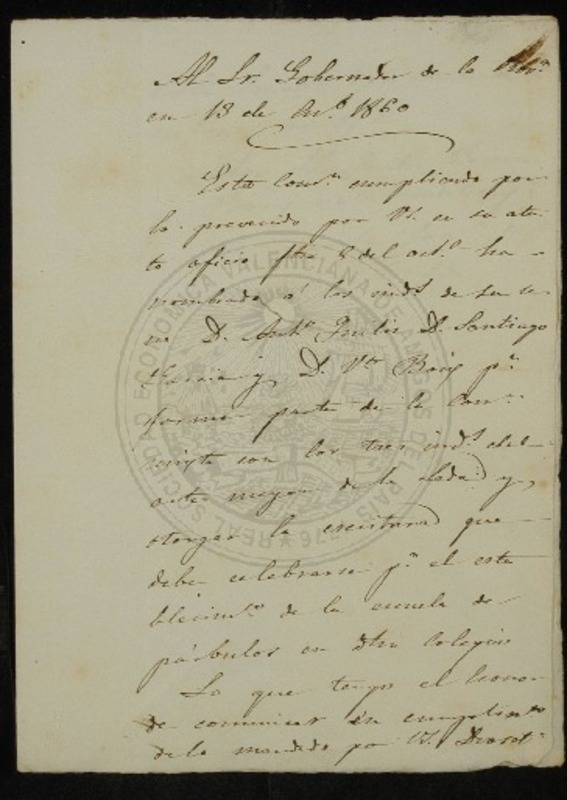 Al Sr. Gobernador de la Prov.ª
en 13 de 1860
Esta Com.n cumpliendo con
lo prevenido por V. en su aten-
to oficio fha 8 del act.l ha
nombrado á los ind.s de su se-
no D. Ant.o D. Santiago
García y D. V.te Boix p.a
formar parte de la Com.n
mixta con los tres ind.s del
arte mayor de la Seda y
otorgar la escritura que
debe celebrarse p.a el esta
blecim.to de la escuela de
párbulos en dho Colegio
Lo que tengo el honor
de comunicar en cumplim.to
de lo mandado por V. Dios
REAL SOCIEDAD ECONOMICA VALENCIANA DE AMIGOS DEL PAIS 1776